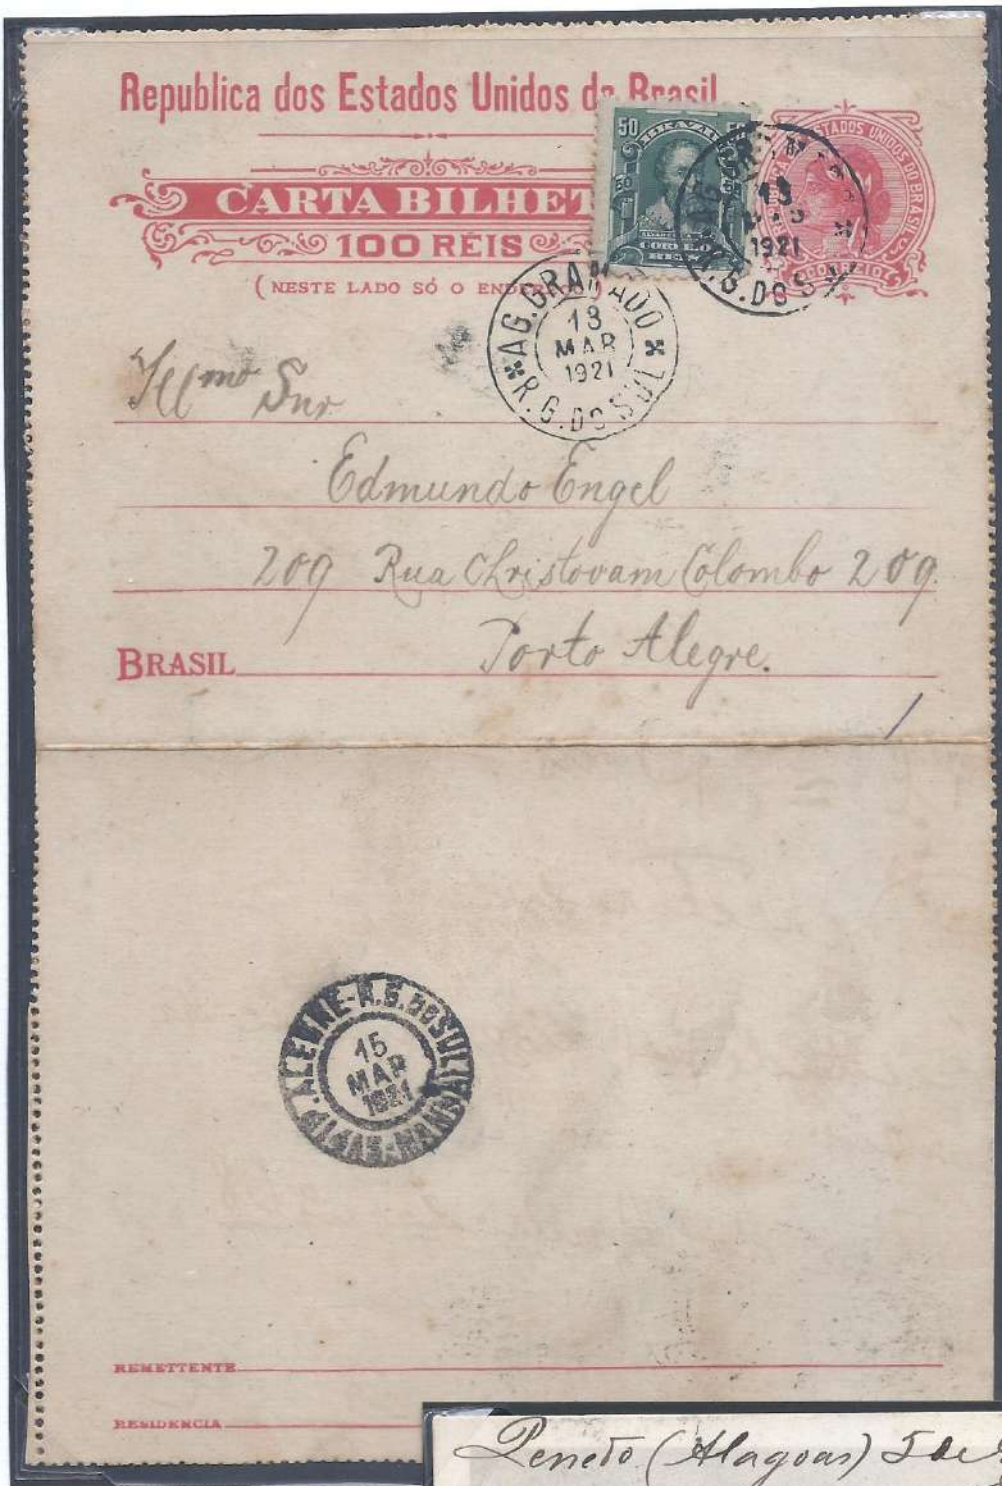 Republica dos Estados Unidos do Brasil
CARTA BILHETE
100 RÉIS
(NESTE LADO SÓ O ENDEREÇO)
50
BRAZIL
50
CORREIO
REIS
ESTADOS UNIDOS DO BRASIL
13
1921
R.G. DO SUL
AG. GRAMADO
13
MAR
1921
R.G. DO SUL
Illmo Snr
Edmundo Engel
209 Rua Christovam Colombo 209.
BRASIL Porto Alegre.
P. ALEGRE - R.G. DO SUL
15
MAR
1921
REMETTENTE
RESIDENCIA
Penedo (Alagoas) 5 de